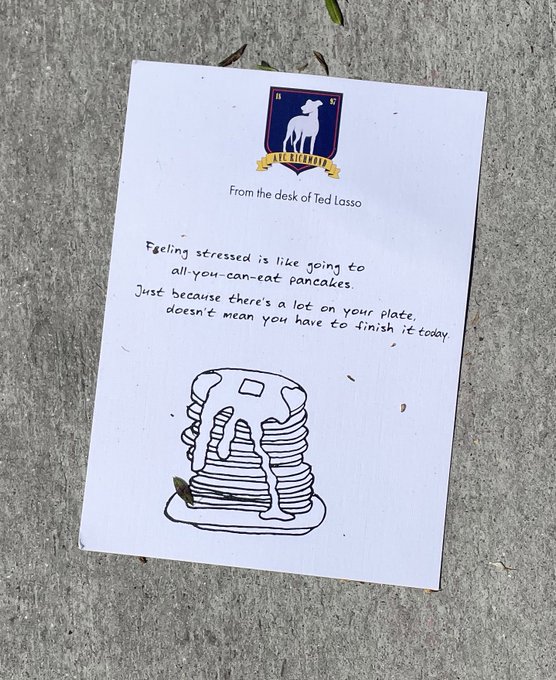 18 97
AFC RICHMOND
From the desk of Ted Lasso
Feeling stressed is like going to
all-you-can-eat pancakes.
Just because there's a lot on your plate,
doesn't mean you have to finish it today.